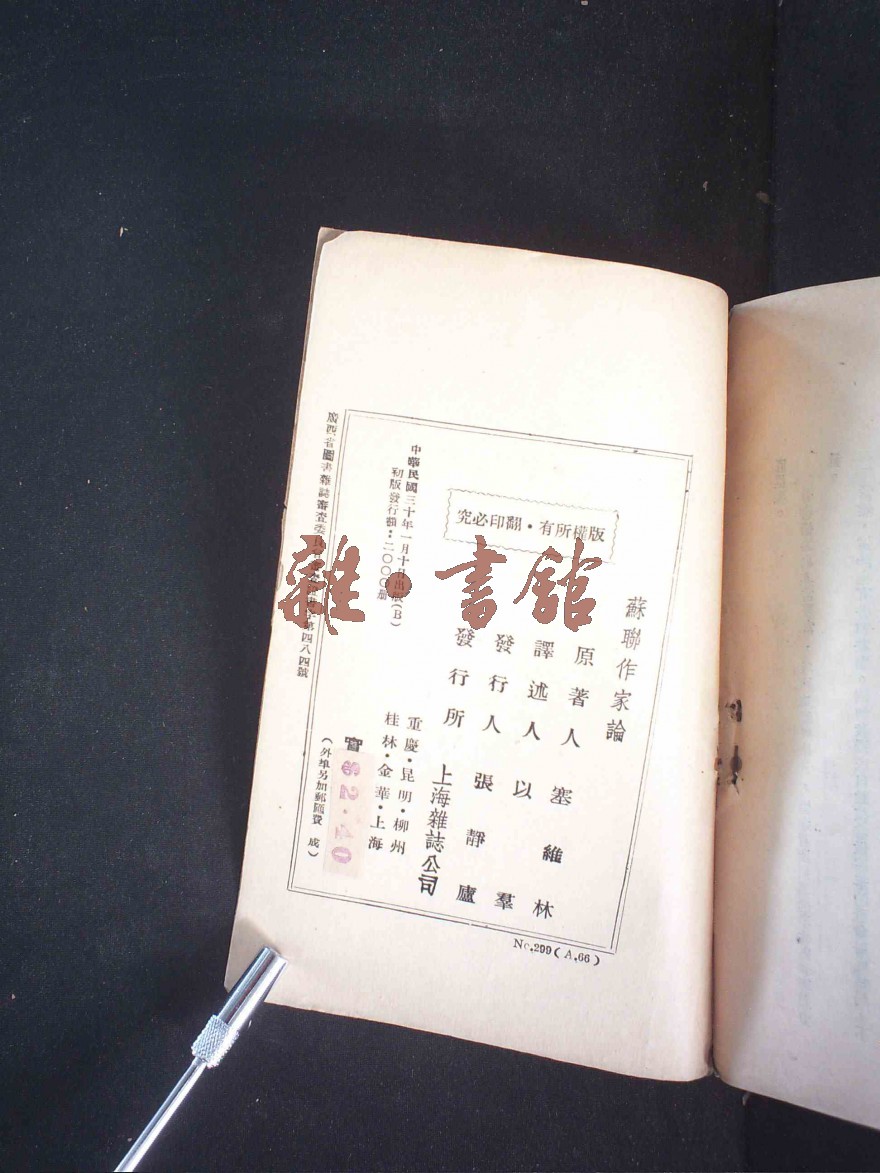 版權所有·翻印必究
蘇聯作家論
原著人 塞維林
譯述人 以羣
發行人 張靜廬
發行所 上海雜誌公司
重慶·昆明·柳州
桂林·金華·上海
中華民國三十年一月十日出版(B)
初版發行額:二〇〇〇册
實
$2.40
(外埠另加郵匯費 成)
廣西省圖書雜誌審查委 字第四八四號
No.299(A.66)
雜·書館